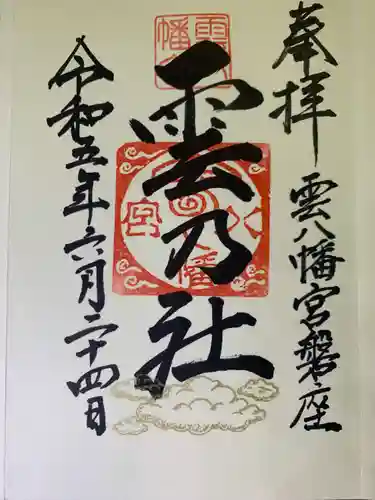 奉拝
雲八幡宮磐座
雲乃社
令和五年六月二十四日
雲八幡宮